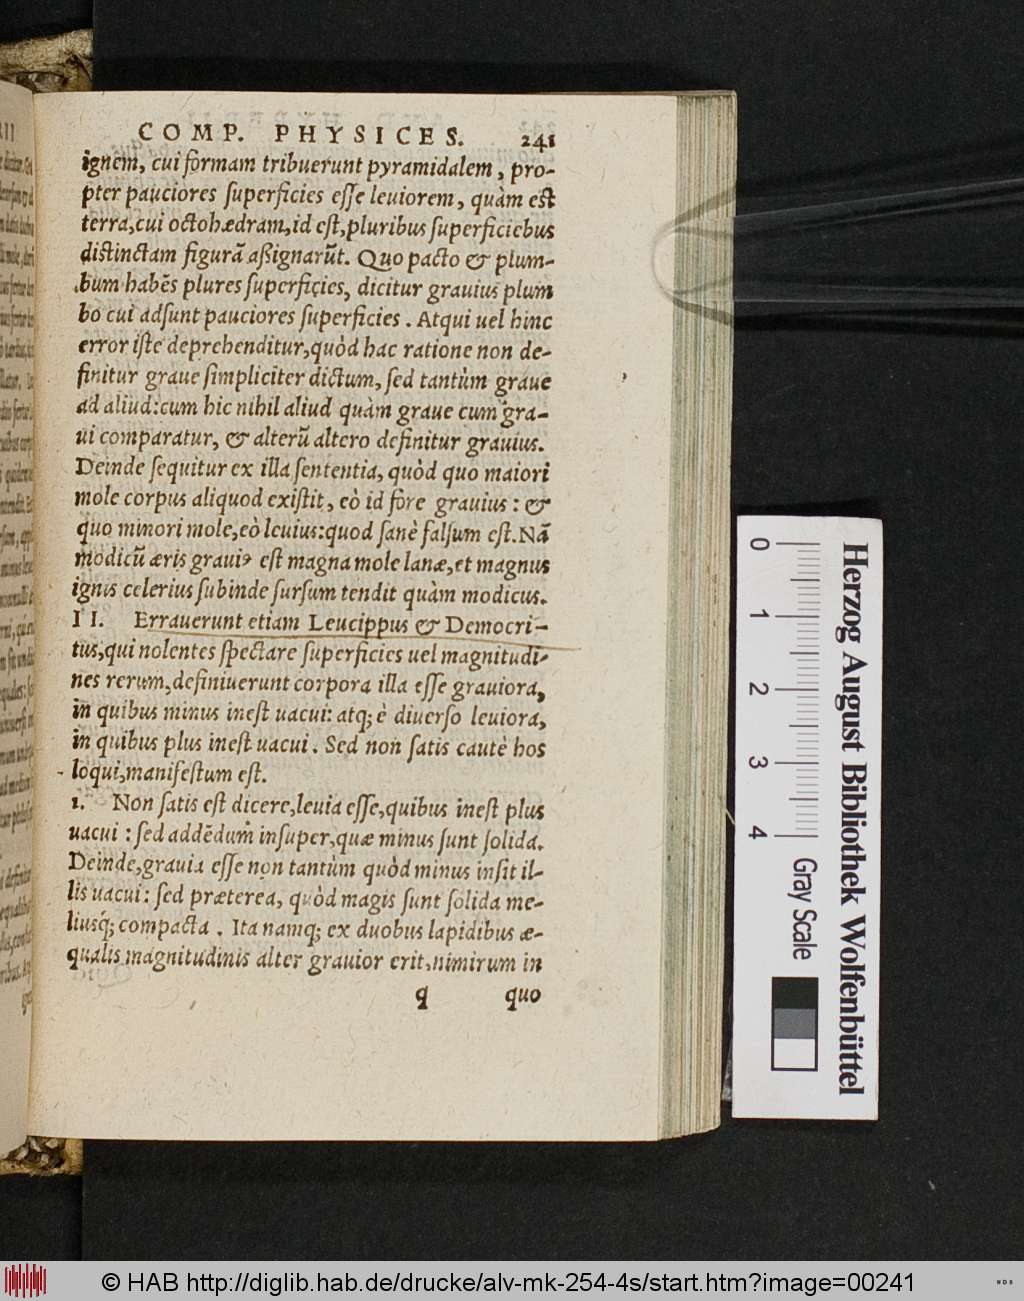 COMP. PHYSICES. 241
ignem, cui formam tribuerunt pyramidalem, pro-
pter pauciores ſuperficies eſſe leuiorem, quàm est
terra, cui octohædram, id eſt, pluribus ſuperficiebus
distinctam figurã aßignarũt. Quo pacto & plum-
bum habẽs plures ſuperficies, dicitur grauius plum
bo cui adſunt pauciores ſuperficies. Atqui uel hinc
error iſte deprehenditur, quòd hac ratione non de-
finitur graue ſimpliciter dictum, ſed tantùm graue
ad aliud: cum hic nihil aliud quàm graue cum gra-
ui comparatur, & alterũ altero definitur grauius.
Deinde ſequitur ex illa ſententia, quòd quo maiori
mole corpus aliquod exiſtit, eò id fore grauius: &
quo minori mole, eò leuius: quod ſanè falſum eſt. Nã
modicũ æris grauiꝰ est magna mole lanæ, et magnus
ignis celerius ſubinde ſurſum tendit quàm modicus.
II. Errauerunt etiam Leucippus & Democri-
tus, qui nolentes ſpectare ſuperficies uel magnitudi-
nes rerum, definiuerunt corpora illa eſſe grauiora,
in quibus minus ineſt uacui: atq; è diuerſo leuiora,
in quibus plus ineſt uacui. Sed non ſatis cautè hos
loqui, manifeſtum eſt.
1. Non ſatis eſt dicere, leuia eſſe, quibus ineſt plus
uacui: ſed addẽdum inſuper, quæ minus ſunt ſolida.
Deinde, grauia eſſe non tantùm quòd minus inſit il-
lis uacui: ſed præterea, quòd magis ſunt ſolida me-
liusq́; compacta. Ita namq; ex duobus lapidibus æ-
qualis magnitudinis alter grauior erit, nimirum in
q quo
0 1 2 3 4
Gray Scale
Herzog August Bibliothek Wolfenbüttel
© HAB http://diglib.hab.de/drucke/alv-mk-254-4s/start.htm?image=00241